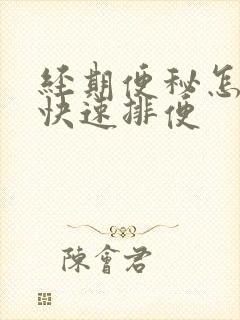 經期便秘怎
快速排便
陳會君